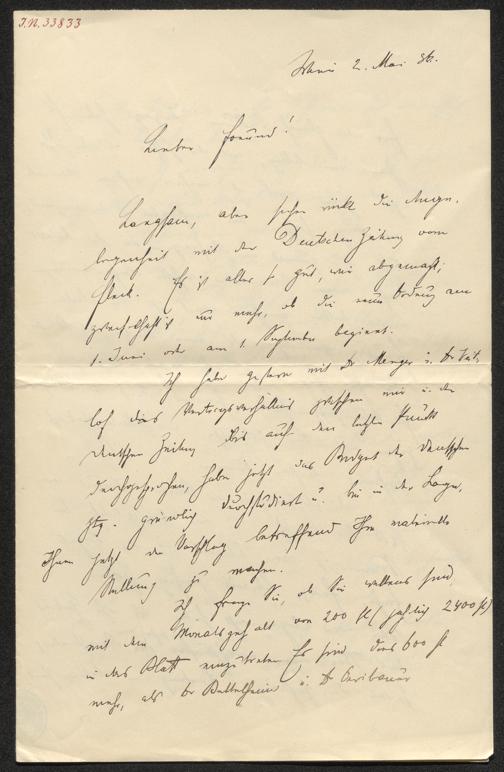 J.N. 33833
Wien 2. Mai 86.
Lieber Freund!
Langsam, aber sicher rückt die Ange-
legenheit mit der Deutschen Zeitung vom
Fleck. Es ist alles so gut, wie abgemacht;
zweifelhaft ist nur mehr, ob die neue Ordnung am
1. Juni oder am 1. September beginnt.
Ich habe gestern mit Dr Menger u. Dr
das Vertragsverhältnis zwischen mir u. der
Deutschen Zeitung bis auf den letzten Punkt
durchgesprochen, habe jetzt das Budget der Deutschen
Ztg. gründlich durchstudiert u. bin in der Lage,
Ihnen jetzt den Vorschlag betreffend Ihre materielle
Stellung zu machen.
Ich frage Sie, ob Sie willens sind,
mit dem Monatsgehalt von 200 fl (jährlich 2400 fl)
in das Blatt einzutreten. Es sind dies 600 fl
mehr, als Dr Bettelheim u. Dr